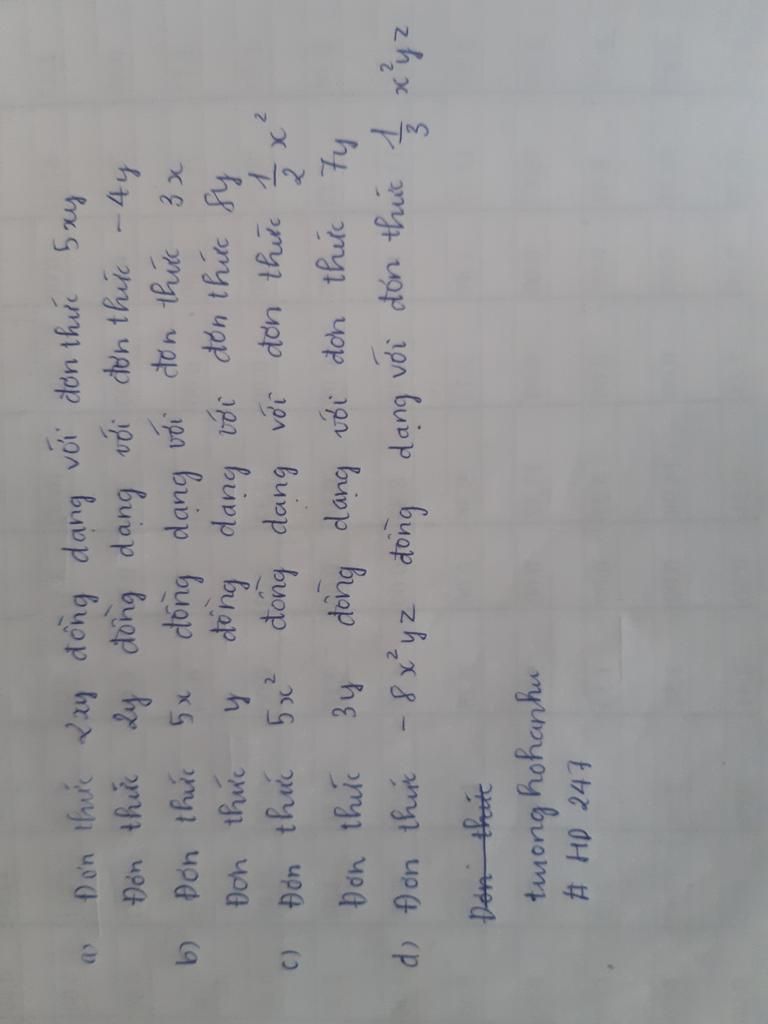 a) Đơn thức 2xy đồng dạng với đơn thức 5xy
Đơn thức 2y đồng dạng với đơn thức -4y
b) Đơn thức 5x đồng dạng với đơn thức 3x
Đơn thức y đồng dạng với đơn thức 8y
c) Đơn thức 5x² đồng dạng với đơn thức 1/2 x²
Đơn thức 3y đồng dạng với đơn thức 7y
d) Đơn thức -8x²yz đồng dạng với đơn thức 1/3 x²yz
Đơn thức
truonghohanhu
# HD 247